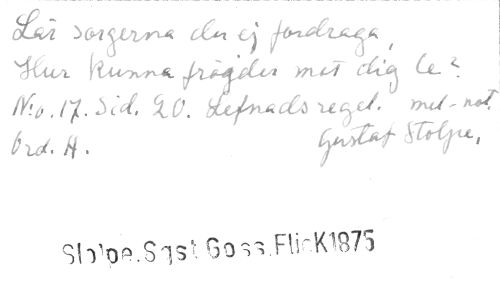 Lär sorgerna du ej fördraga,
Hur kunna fröjder mot dig le?
N:o. 17. Sid. 20. Lefnadsregel. mel-not.
Ord. A. Gustaf Stolpe.
Stolpe.Sgst Goss.FlicK1875